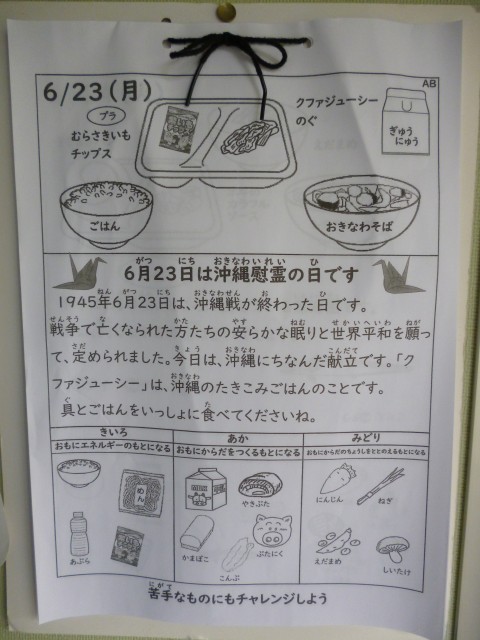 AB
6/23(月)
プラ
むらさきいも
チップス
クファジューシー
のぐ
ぎゅう
にゅう
ごはん
おきなわそば
6月23日は沖縄慰霊の日です
1945年6月23日は、沖縄戦が終わった日です。
戦争で亡くなられた方たちの安らかな眠りと世界平和を願っ
て、定められました。今日は、沖縄にちなんだ献立です。「ク
ファジューシー」は、沖縄のたきこみごはんのことです。
具とごはんをいっしょに食べてくださいね。
きいろ
おもにエネルギーのもとになる
めん
あぶら
あか
おもにからだをつくるもとになる
やきぶた
かまぼこ
ぶたにく
こんぶ
みどり
おもにからだのちょうしをととのえるもとになる
にんじん
ねぎ
えだまめ
しいたけ
苦手なものにもチャレンジしよう